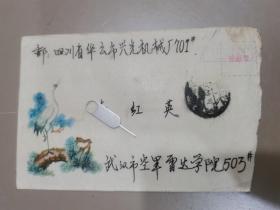 邮：四川省华云市兴光机械厂701#
红英
武汉市空军雷达学院503#